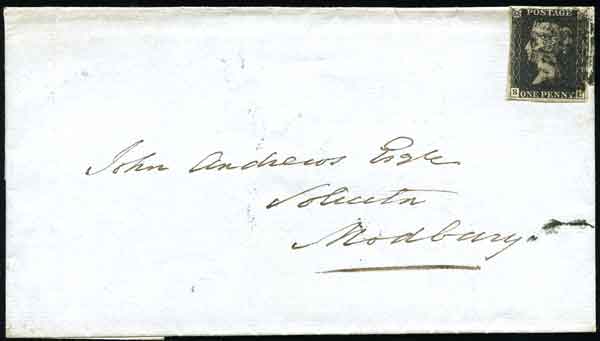 POSTAGE
S ONE PENNY L
John Andrews Esqre
Solicitr
Modbury